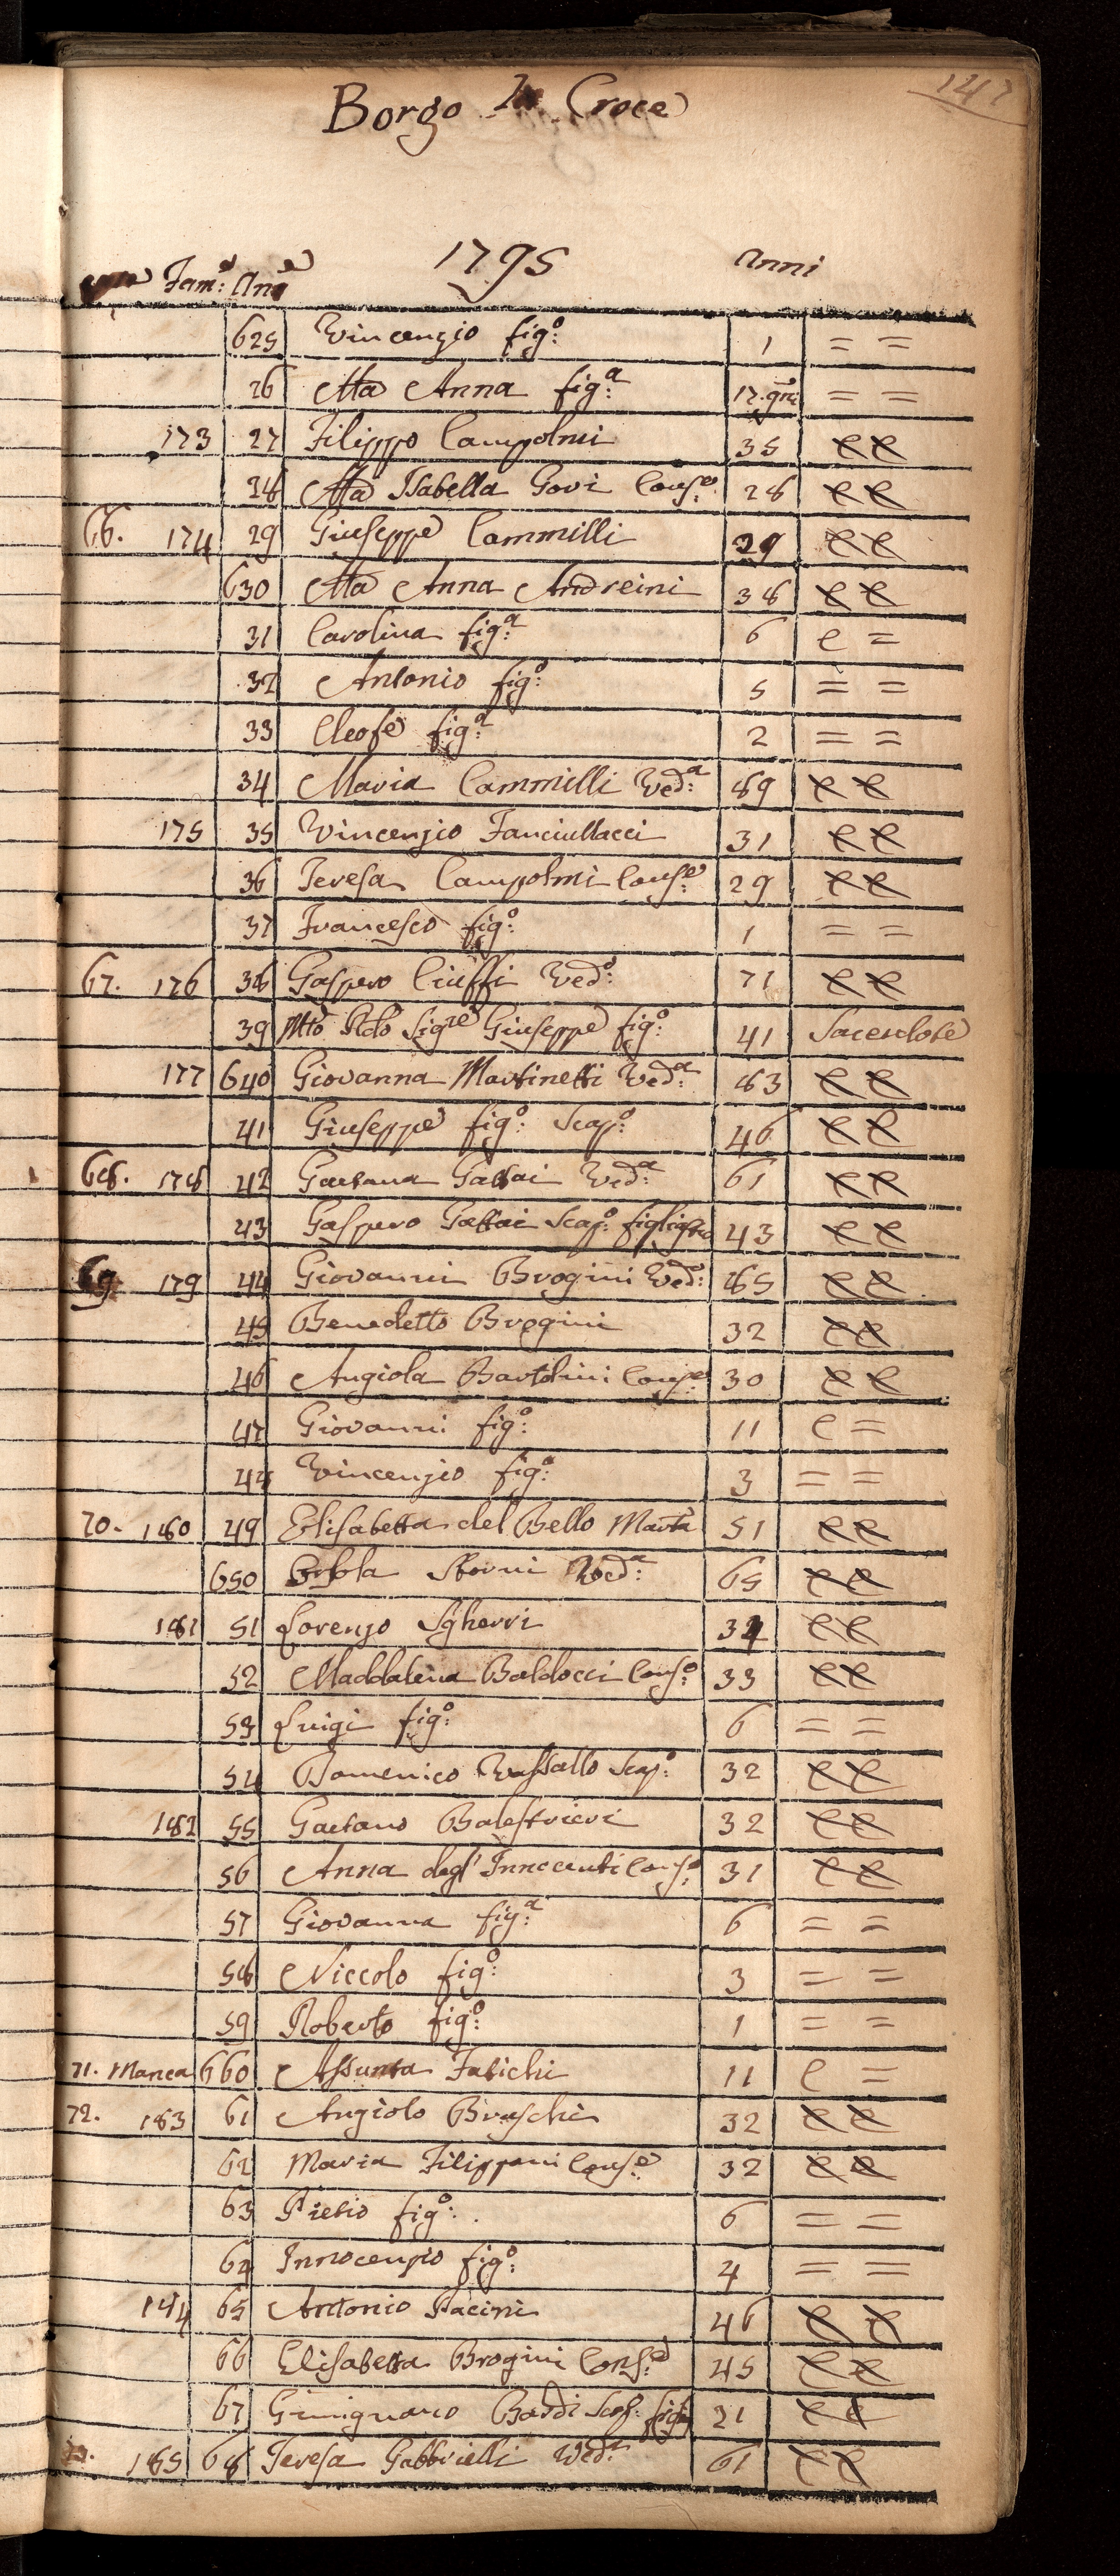 147
Borgo La Croce
1795
Case Fam:e Ane Anni
625 Vincenzio fig:o 1 = =
26 Ma Anna fig:a 17.gni = =
173 27 Filippo Campolmi 35 C C
28 Ma Isabella Govi Cons:e 28 C C
66. 174 29 Giuseppe Cammilli 39 C C
630 Ma Anna Andreini 38 C C
31 Carolina fig:a 6 C =
32 Antonio fig:o 5 = =
33 Cleofe fig:a 2 = =
34 Maria Cammilli Ved:a 69 C C
175 35 Vincenzio Fanciullacci 31 C C
36 Teresa Campolmi Cons:e 29 C C
37 Francesco fig:o 1 = =
67. 176 38 Gaspero Ciuffi Ved:o 71 C C
39 Mto Rdo Sigre Giuseppe fig:o 41 Sacerdote
177 640 Giovanna Martinetti Ved:a 83 C C
41 Giuseppe fig:o Scap:o 46 C C
68. 178 42 Gaetana Gattai Ved:a 61 C C
43 Gaspero Gattai Scap:o 43 C C
69 179 44 Giovanni Brogini Ved:o 65 C C
45 Benedetto Brogini 32 C C
46 Angiola Bartolini Cons:e 30 C C
47 Giovanni fig:o 11 C =
48 Vincenzio fig:o 3 = =
70. 180 49 Elisabetta del Bello Marta 51 C C
650 Orsola Storni Ved:a 65 C C
181 51 Lorenzo Sgherri 34 C C
52 Maddalena Baldocci Cons:e 33 C C
53 Luigi fig:o 6 = =
54 Domenico Vassallo Scap:o 32 C C
182 55 Gaetano Balestrieri 32 C C
56 Anna degl' Innocenti Cons:e 31 C C
57 Giovanna fig:a 6 = =
58 Niccolo fig:o 3 = =
59 Roberto fig:o 1 = =
71. Manca 660 Assunta Fabichi 11 C =
72. 183 61 Angiolo Bruschi 32 C C
62 Maria Filippani Cons:e 32 C C
63 Pietro fig:o 6 = =
64 Innocenzio fig:o 4 = =
184 65 Antonio Pacini 46 C C
66 Elisabetta Brogini Cons:e 45 C C
67 Gimignano Bardi Scap: 21 C C
185 68 Teresa Gabbrielli Ved:a 61 C C